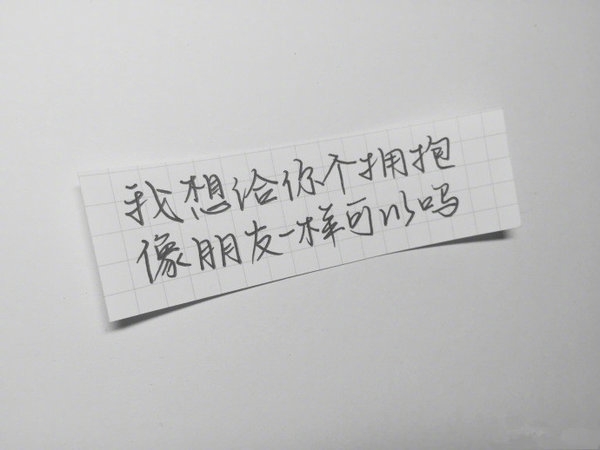 我想给你个拥抱
像朋友一样可以吗